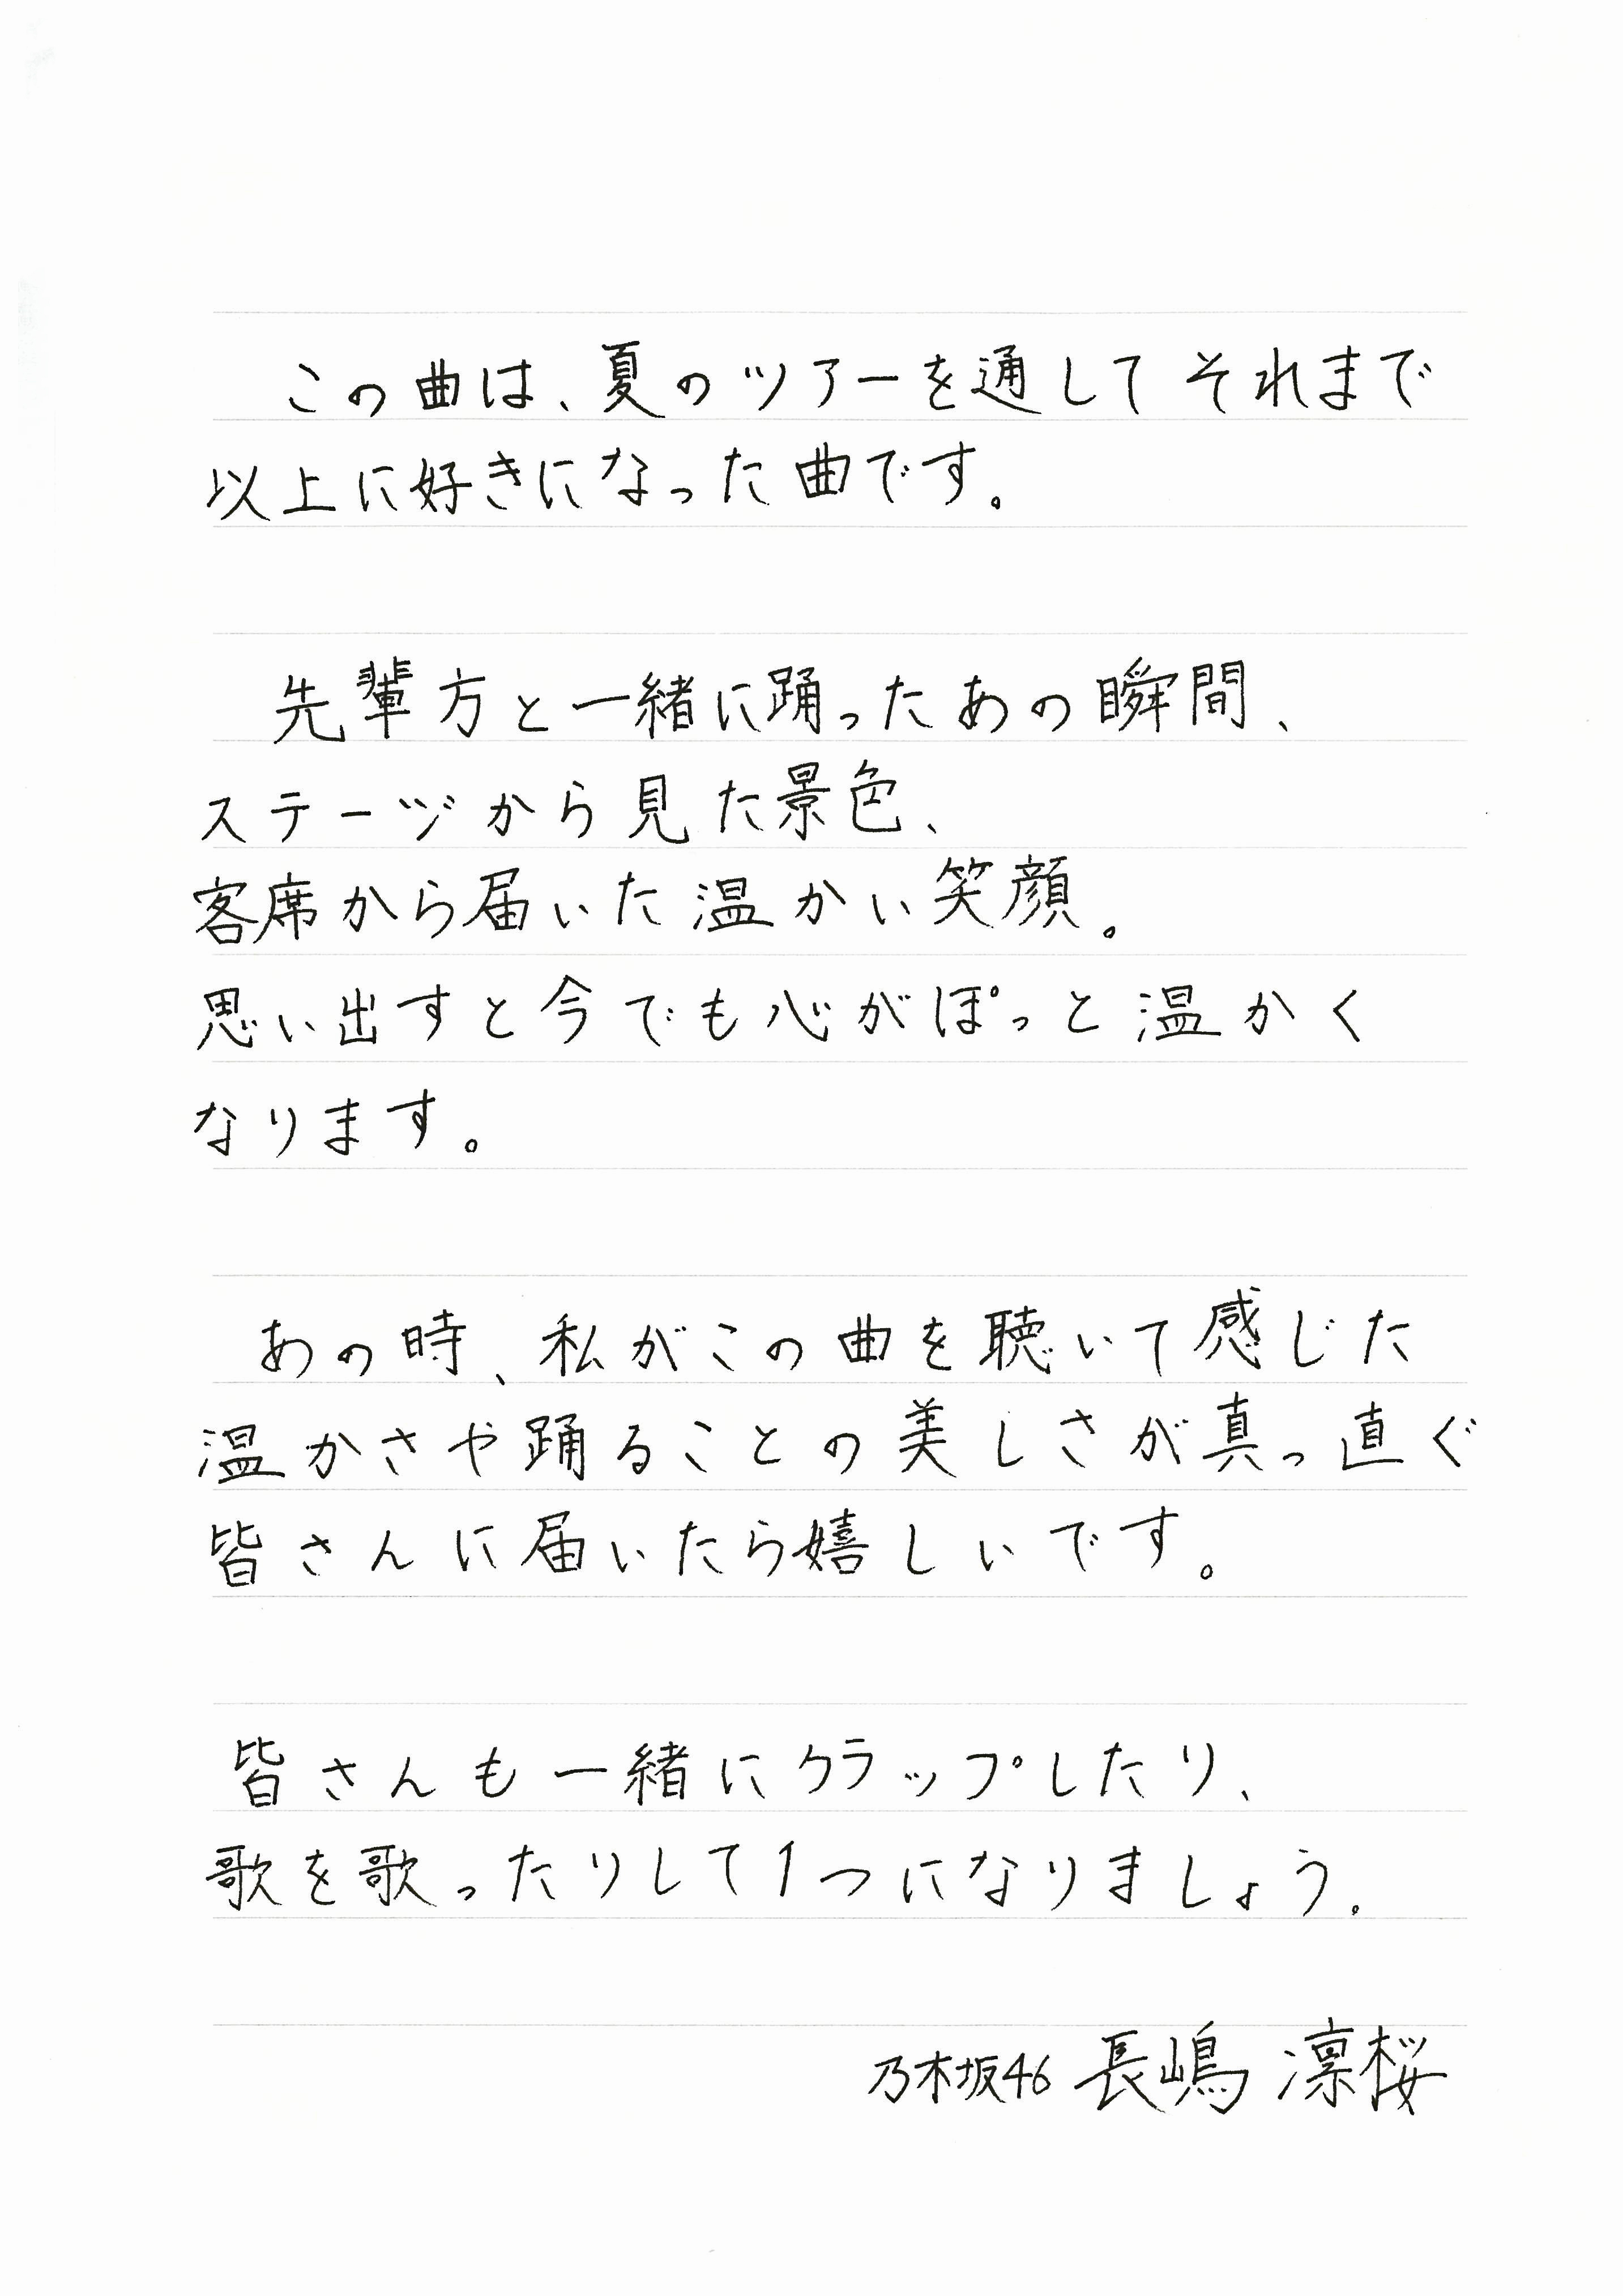 この曲は、夏のツアーを通してそれまで
以上に好きになった曲です。
先輩方と一緒に踊ったあの瞬間、
ステージから見た景色、
客席から届いた温かい笑顔。
思い出すと今でも心がぽっと温かく
なります。
あの時、私がこの曲を聴いて感じた
温かさや踊ることの美しさが真っ直ぐ
皆さんに届いたら嬉しいです。
皆さんも一緒にクラップしたり、
歌を歌ったりして1つになりましょう。
乃木坂46 長嶋 凛桜